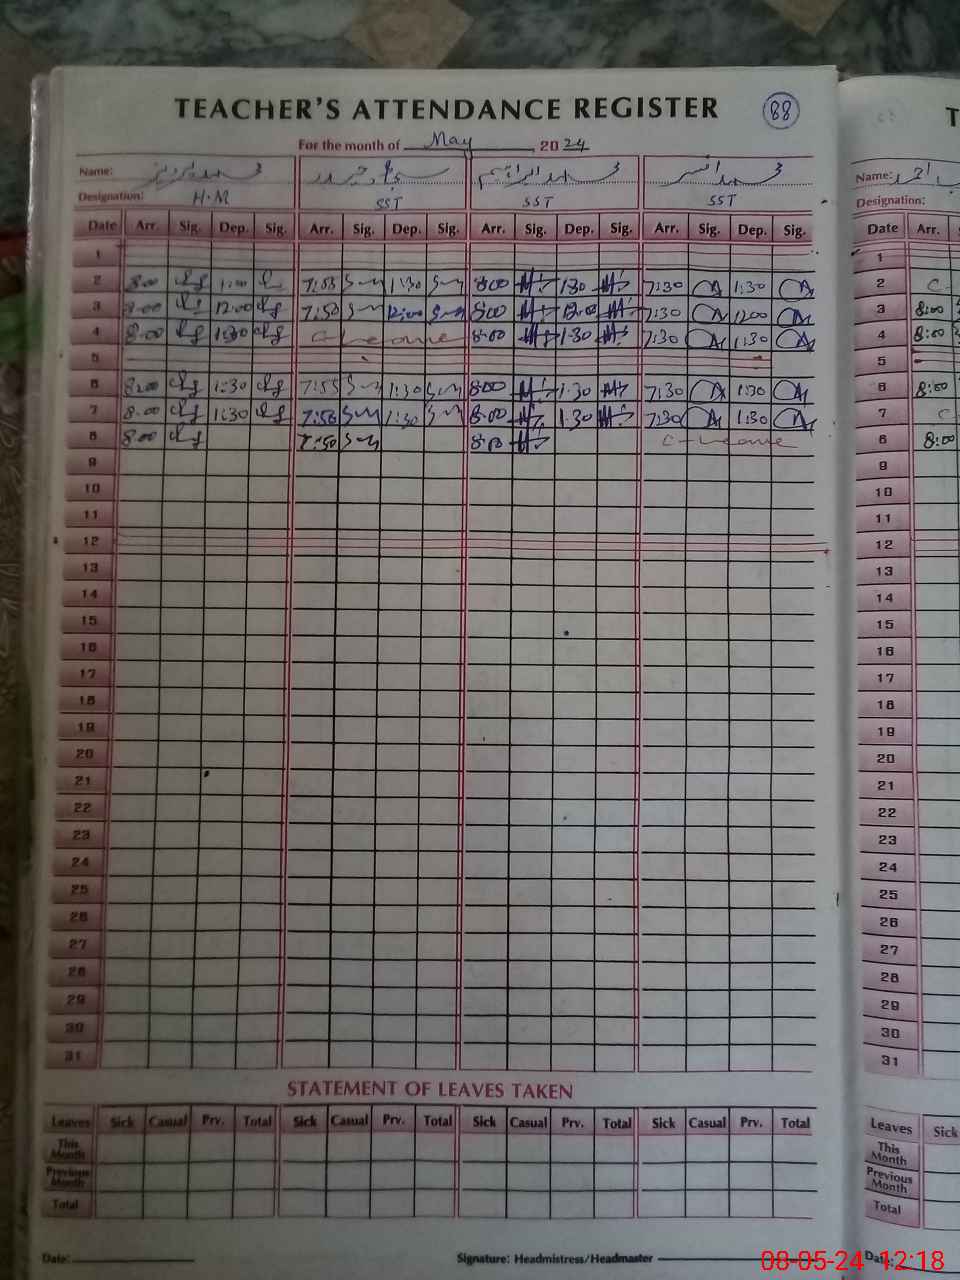 TEACHER'S ATTENDANCE REGISTER 88
For the month of May, 2024
Name: محمد محمد ابراہیم محمد Name:
Designation: H.M SST SST SST Designation:
Date Arr. Sig. Dep. Sig. Arr. Sig. Dep. Sig. Arr. Sig. Dep. Sig. Arr. Sig. Dep. Sig. Date Arr.
1 1
2 8:00 1:30 7:55 1:30 8:00 1:30 7:30 1:30 2 C-
3 8:00 12:00 7:50 12:00 8:00 12:00 7:30 12:00 3 8:00
4 8:00 1:30 C-Leave 8:00 1:30 7:30 1:30 4 8:00
5 5
6 8:00 1:30 7:55 1:30 8:00 1:30 7:30 1:30 6 8:00
7 8:00 1:30 7:50 1:30 8:00 1:30 7:30 1:30 7 C-
8 8:00 7:50 8:00 C-Leave 8 8:00
9 9
10 10
11 11
12 12
13 13
14 14
15 15
16 16
17 17
18 18
19 19
20 20
21 21
22 22
23 23
24 24
25 25
26 26
27 27
28 28
29 29
30 30
31 31
STATEMENT OF LEAVES TAKEN
Leaves Sick Casual Prv. Total Sick Casual Prv. Total Sick Casual Prv. Total Sick Casual Prv. Total Leaves Sick
This Month This Month
Previous Month Previous Month
Total Total
Date: Signature: Headmistress/Headmaster Date:
08-05-24 12:18